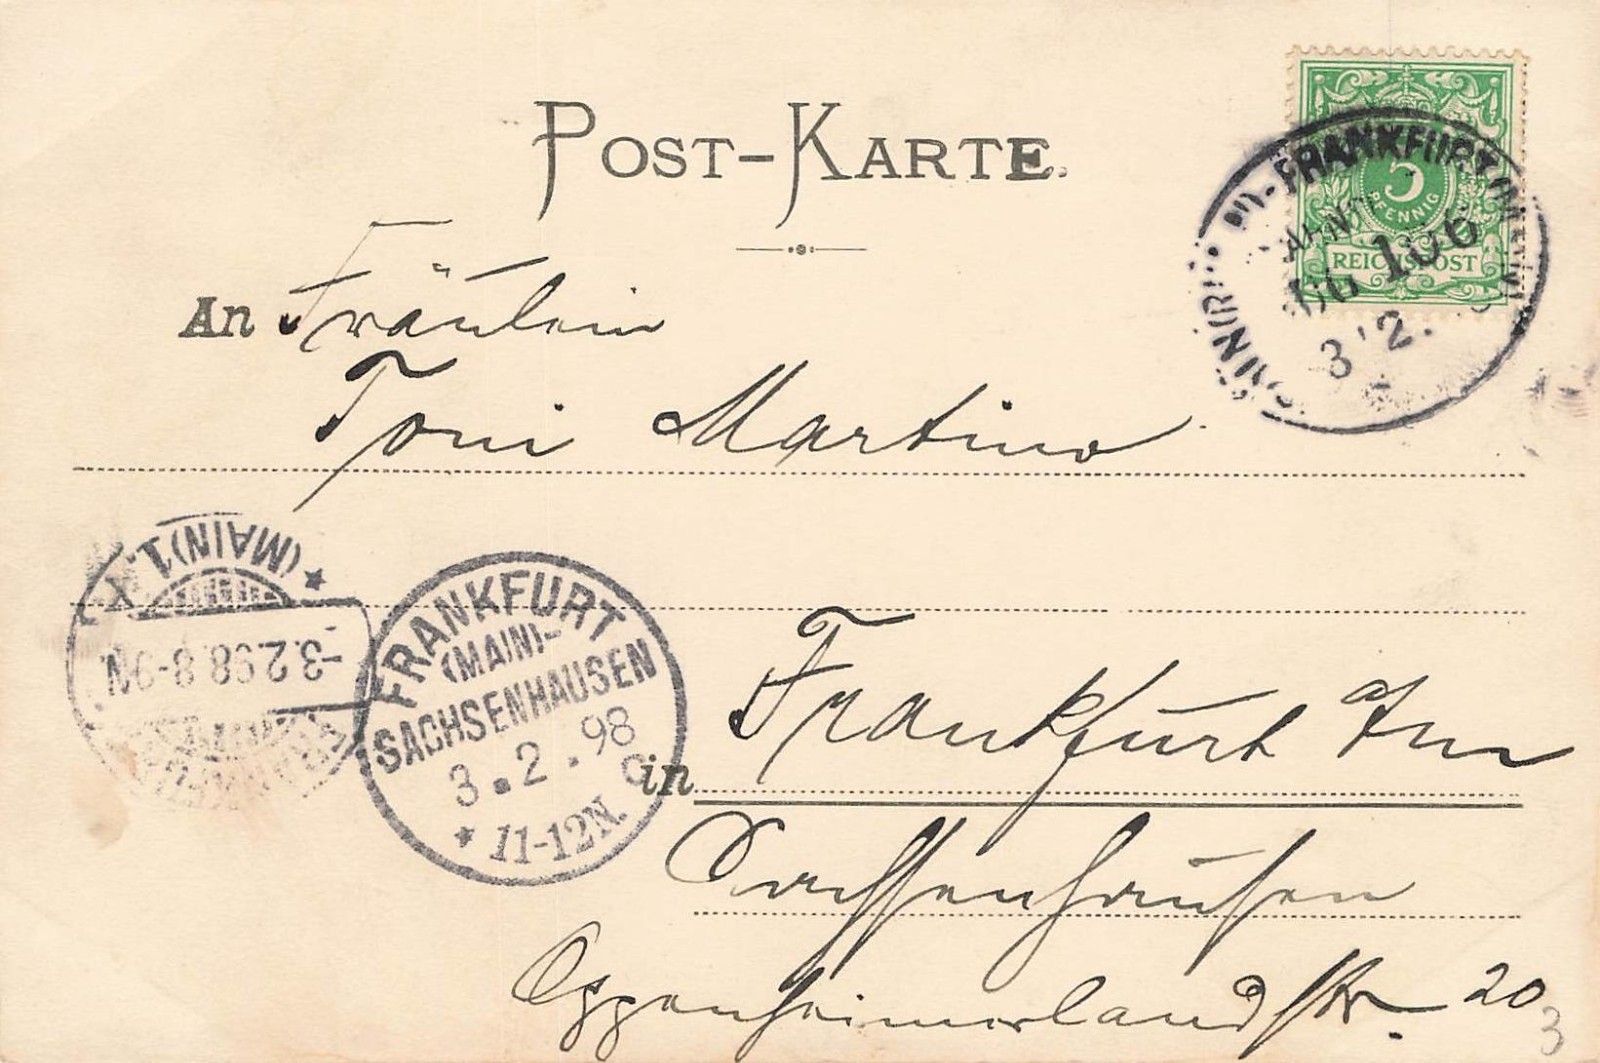 POST-KARTE.
5
PFENNIG
REICHSPOST
FRANKFURT (M
106
3 2.
An Fräulein
Toni Martino
(MAIN) 1.
-3.2.98.8-9N.
FRANKFURT
(MAIN)-
SACHSENHAUSEN
3.2.98
* 11-12N.
in Frankfurt a/m
Sachsenhausen
Oppenheimerlandstr. 20
3